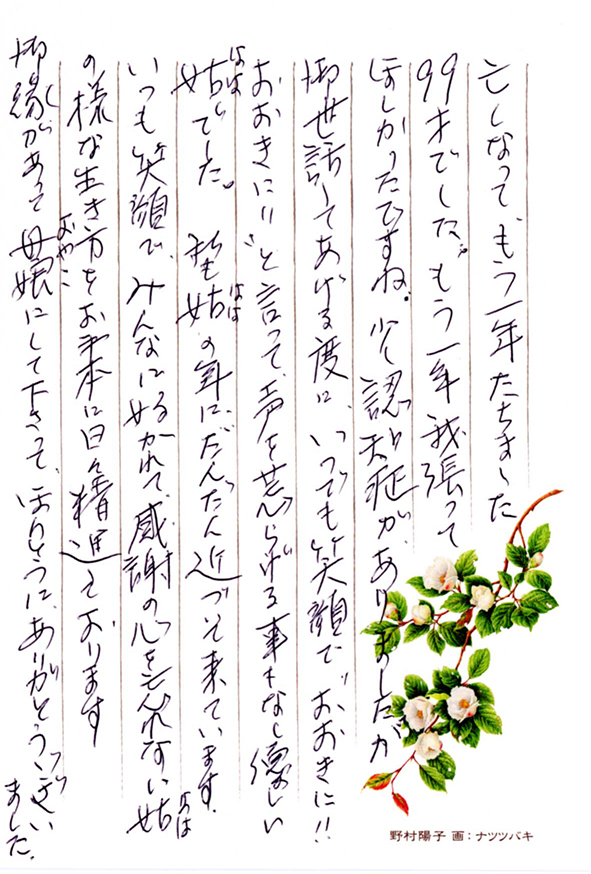 亡くなって、もう一年たちました
99才でした。もう一年頑張って
ほしかったですね。少し認知症がありましたが
御世話してあげる度に、いつでも笑顔で〝おおきに!!
おおきに!!〟と言って、声を荒らげる事もなし優しい
姑(はは)でした。私も姑(はは)の年に、だんだん近づいて来ています。
いつも笑顔で、みんなに好かれて、感謝の心を忘れない姑(はは)
の様な生き方をお手本に日々精進しております
御縁があって母娘(おやこ)にして下さって、ほんとうに、ありがとうございました。
野村陽子 画：ナツツバキ